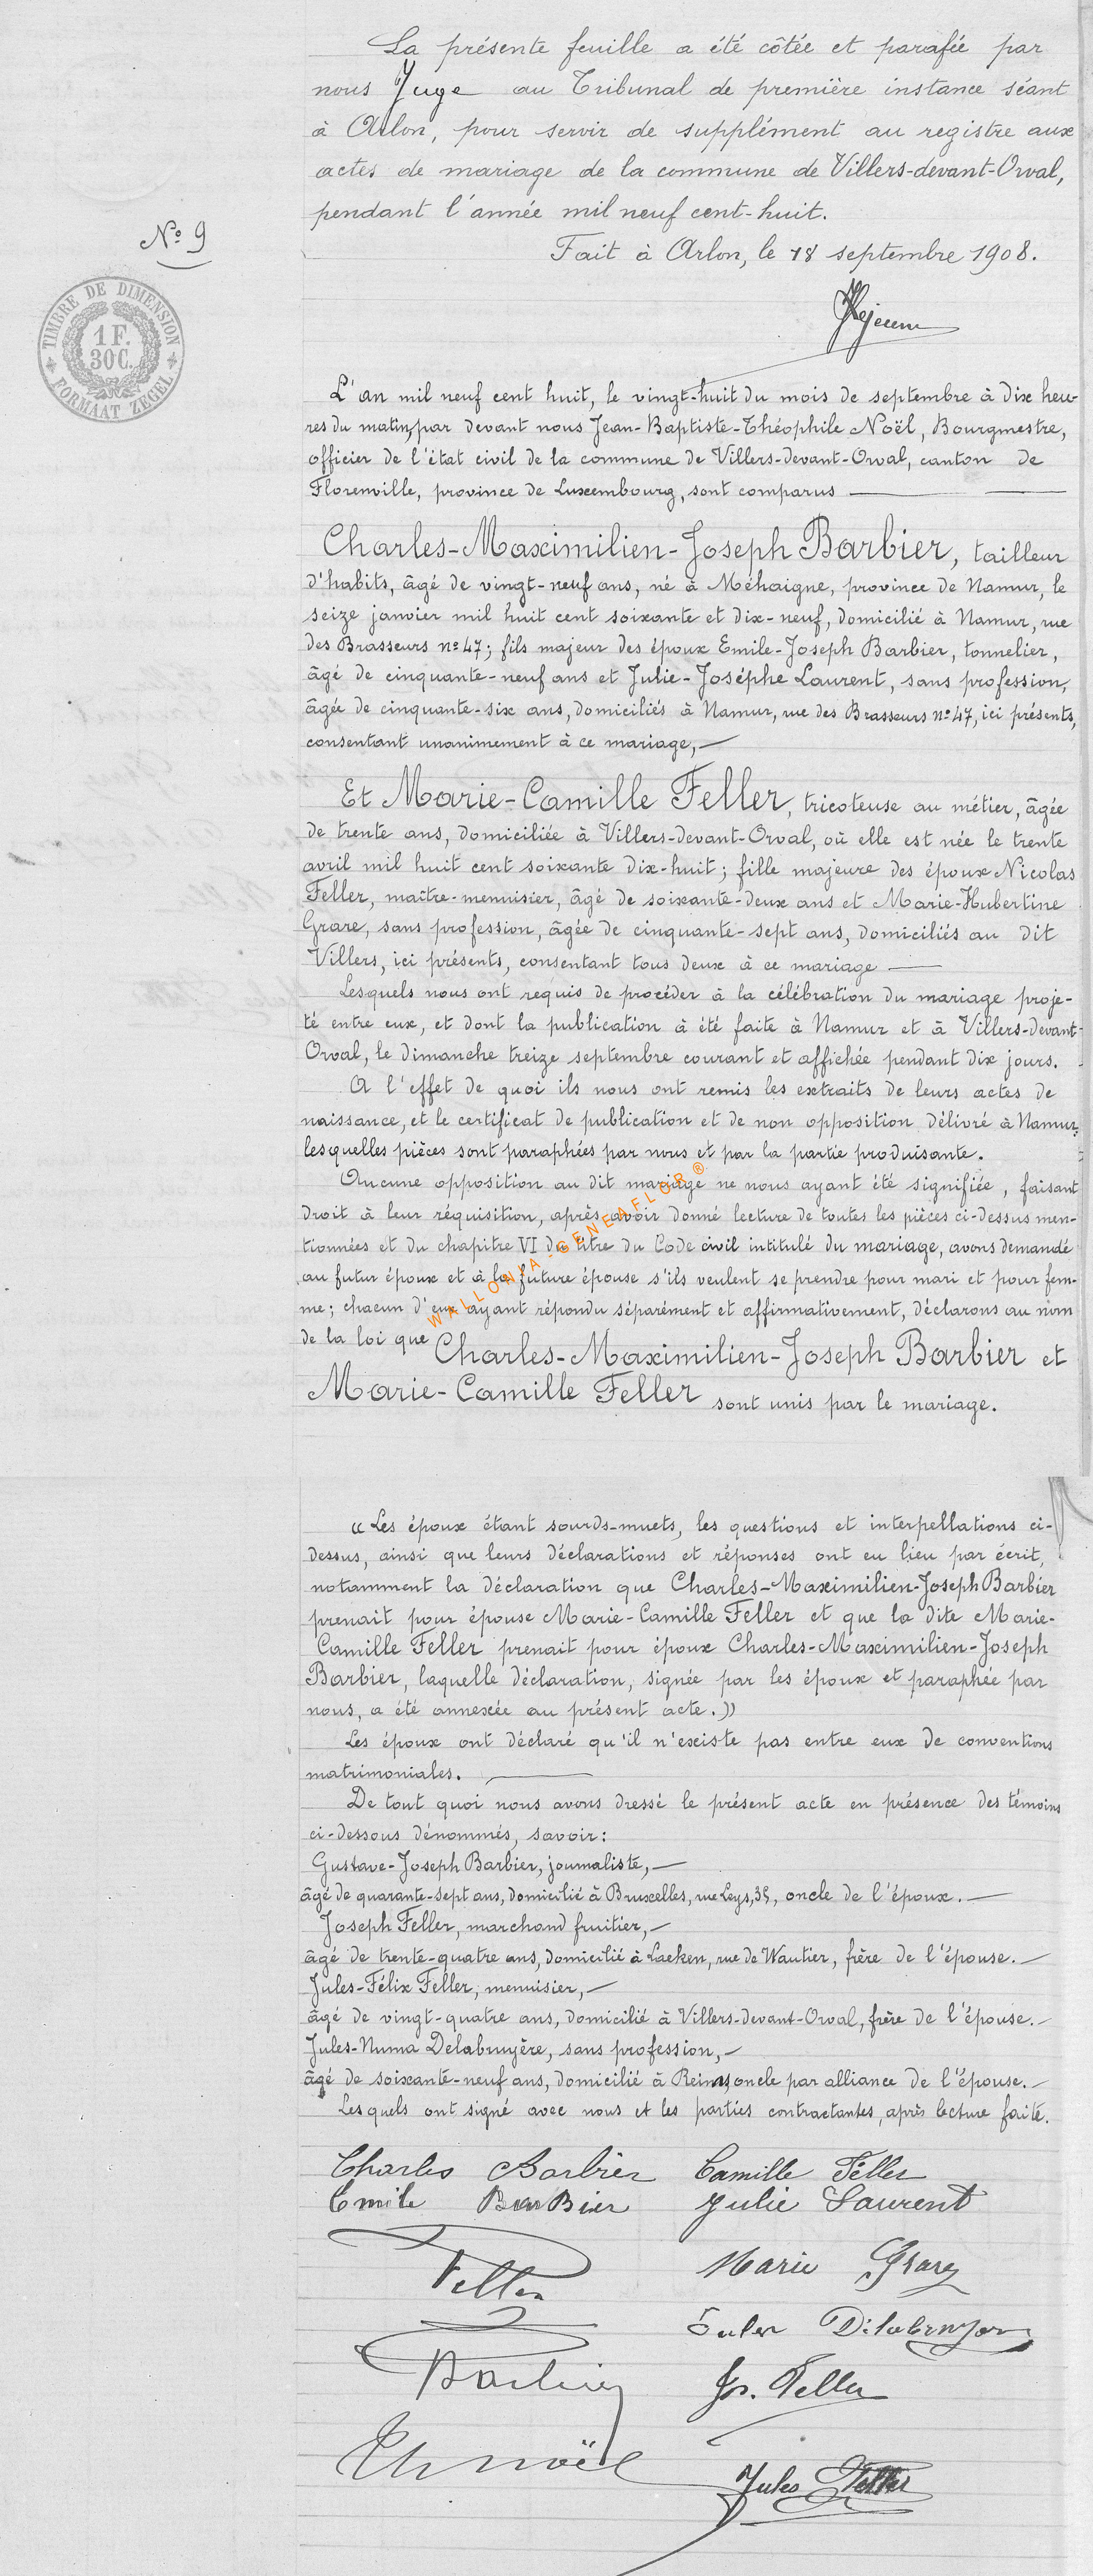 La présente feuille a été côtée et parafée par
nous Juge au Tribunal de première instance séant
à Arlon, pour servir de supplément au registre aux
actes de mariage de la commune de Villers-devant-Orval,
pendant l'année mil neuf cent-huit.
Nº 9
Fait à Arlon, le 18 septembre 1908.
TIMBRE DE DIMENSION
1 F.
30 C.
FORMAAT ZEGEL
L'an mil neuf cent huit, le vingt-huit du mois de septembre à dix heu-
res du matin, par devant nous Jean-Baptiste-Théophile Noël, Bourgmestre,
officier de l'état civil de la commune de Villers-devant-Orval, canton de
Florenville, province de Luxembourg, sont comparus
Charles-Maximilien-Joseph Barbier, tailleur
d'habits, âgé de vingt-neuf ans, né à Méhaigne, province de Namur, le
seize janvier mil huit cent soixante et dix-neuf, domicilié à Namur, rue
des Brasseurs nº 47; fils majeur des époux Emile-Joseph Barbier, tonnelier,
âgé de cinquante-neuf ans et Julie-Joséphe Laurent, sans profession,
âgée de cinquante-six ans, domiciliés à Namur, rue des Brasseurs nº 47, ici présents,
consentant unanimement à ce mariage,
Et Marie-Camille Feller, tricoteuse au métier, âgée
de trente ans, domiciliée à Villers-devant-Orval, où elle est née le trente
avril mil huit cent soixante dix-huit; fille majeure des époux Nicolas
Feller, maître-menuisier, âgé de soixante-deux ans et Marie-Hubertine
Grare, sans profession, âgée de cinquante-sept ans, domiciliés au dit
Villers, ici présents, consentant tous deux à ce mariage
Lesquels nous ont requis de procéder à la célébration du mariage proje-
té entre eux, et dont la publication à été faite à Namur et à Villers-devant-
Orval, le dimanche treize septembre courant et affichée pendant dix jours.
A l'effet de quoi ils nous ont remis les extraits de leurs actes de
naissance, et le certificat de publication et de non opposition délivré à Namur;
lesquelles pièces sont paraphées par nous et par la partie produisante.
Aucune opposition au dit mariage ne nous ayant été signifiée, faisant
droit à leur réquisition, après avoir donné lecture de toutes les pièces ci-dessus men-
tionnées et du chapitre VI du titre du Code civil intitulé du mariage, avons demandé
au futur époux et à la future épouse s'ils veulent se prendre pour mari et pour fem-
me; chacun d'eux ayant répondu séparément et affirmativement, déclarons au nom
de la loi que Charles-Maximilien-Joseph Barbier et
Marie-Camille Feller sont unis par le mariage.
WALLONIA-GENEAFLOR ®
(( Les époux étant sourds-muets, les questions et interpellations ci-
dessus, ainsi que leurs déclarations et réponses ont eu lieu par écrit,
notamment la déclaration que Charles-Maximilien-Joseph Barbier
prenait pour épouse Marie-Camille Feller et que la dite Marie-
Camille Feller prenait pour époux Charles-Maximilien-Joseph
Barbier, laquelle déclaration, signée par les époux et paraphée par
nous, a été annexée au présent acte. ))
Les époux ont déclaré qu'il n'existe pas entre eux de conventions
matrimoniales.
De tout quoi nous avons dressé le présent acte en présence des témoins
ci-dessous dénommés, savoir:
Gustave-Joseph Barbier, journaliste,
âgé de quarante-sept ans, domicilié à Bruxelles, rue Leys, 35, oncle de l'époux.
Joseph Feller, marchand fruitier,
âgé de trente-quatre ans, domicilié à Laeken, rue de Wautier, frère de l'épouse.
Jules-Félix Feller, menuisier,
âgé de vingt-quatre ans, domicilié à Villers-devant-Orval, frère de l'épouse.
Jules-Numa Delabruyère, sans profession,
âgé de soixante-neuf ans, domicilié à Reims, oncle par alliance de l'épouse.
Lesquels ont signé avec nous et les parties contractantes, après lecture faite.
Charles Barbier Camille Feller
Emile BarBier Julie Laurent
Feller Marie Grare
Barbier Jos. Feller
Th Noël Jules Feller